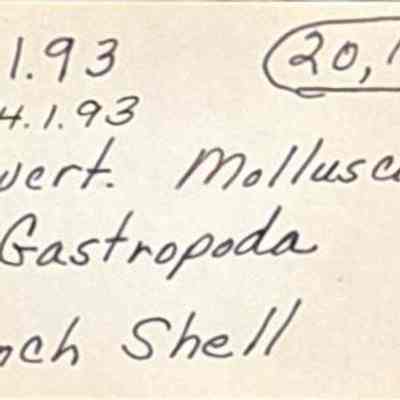 1.93 20,1
4.1.93
vert. Mollusca
Gastropoda
nch Shell